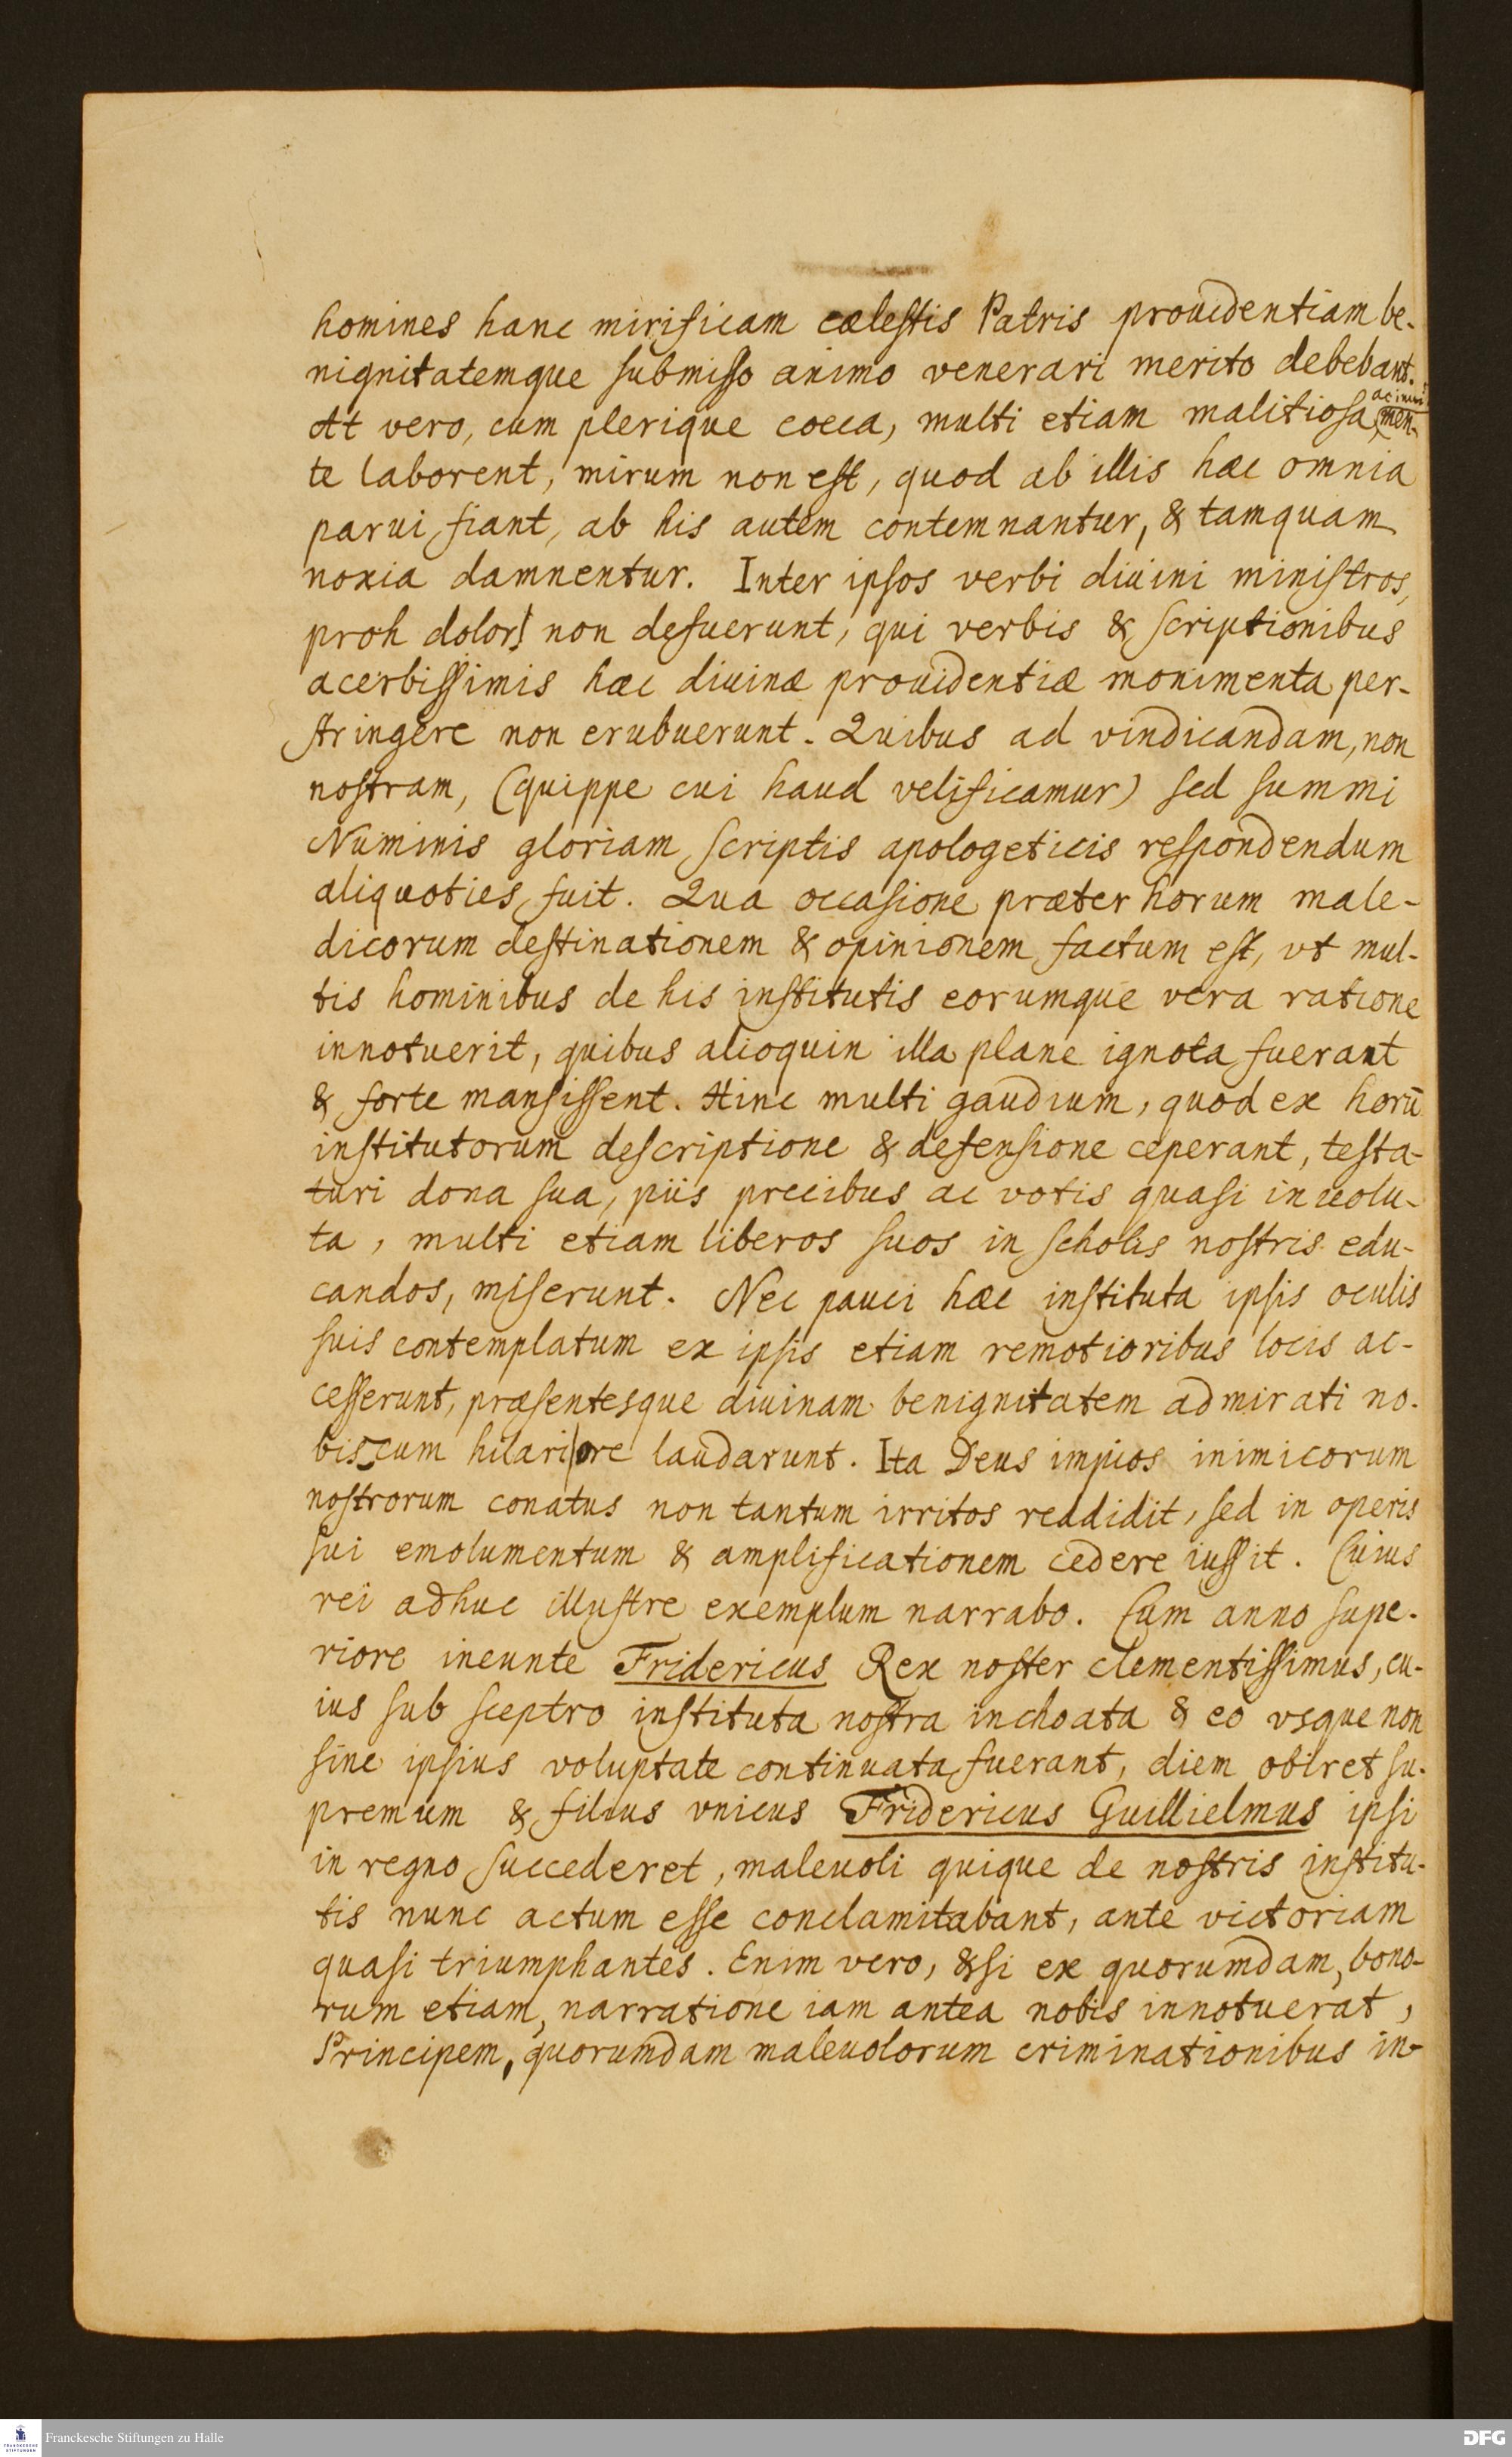 homines hanc mirificam cælestis Patris prouidentiam be-
nignitatemque submisso animo venerari merito debebant.
At vero, cum plerique coeca, multi etiam malitiosa men-
te laborent, mirum non est, quod ab illis hæc omnia
parui fiant, ab his autem contemnantur, & tamquam
noxia damnentur. Inter ipsos verbi diuini ministros,
proh dolor! non defuerunt, qui verbis & scriptionibus
acerbissimis hæc diuinæ prouidentiæ monimenta per-
stringere non erubuerunt. Quibus ad vindicandam, non
nostram, (quippe cui haud velificamur) sed summi
Numinis gloriam scriptis apologeticis respondendum
aliquoties fuit. Qua occasione præter horum male-
dicorum destinationem & opinionem factum est, vt mul-
tis hominibus de his institutis eorumque vera ratione
innotuerit, quibus alioquin illa plane ignota fuerant
& forte mansissent. Hinc multi gaudium, quod ex horū
institutorum descriptione & defensione ceperant, testa-
turi dona sua, piis precibus ac votis quasi inuolu-
ta, multi etiam liberos suos in scholis nostris edu-
candos, miserunt. Nec pauci hæc instituta ipsis oculis
suis contemplatum ex ipsis etiam remotioribus locis ac-
cesserunt, præsentesque diuinam benignitatem admirati no-
biscum hilari ore laudarunt. Ita Deus impios inimicorum
nostrorum conatus non tantum irritos reddidit, sed in operis
sui emolumentum & amplificationem cedere iussit. Cuius
rei adhuc illustre exemplum narrabo. Cum anno supe-
riore ineunte Fridericus Rex noster clementissimus, cu-
ius sub sceptro instituta nostra inchoata & eo vsque non
sine ipsius voluptate continuata fuerant, diem obiret su-
premum & filius vnicus Fridericus Guillielmus ipsi
in regno succederet, maleuoli quique de nostris institu-
tis nunc actum esse conclamitabant, ante victoriam
quasi triumphantes. Enim vero, &si ex quorumdam, bono-
rum etiam, narratione iam antea nobis innotuerat,
Principem, quorumdam maleuolorum criminationibus in-
Franckesche Stiftungen zu Halle
DFG